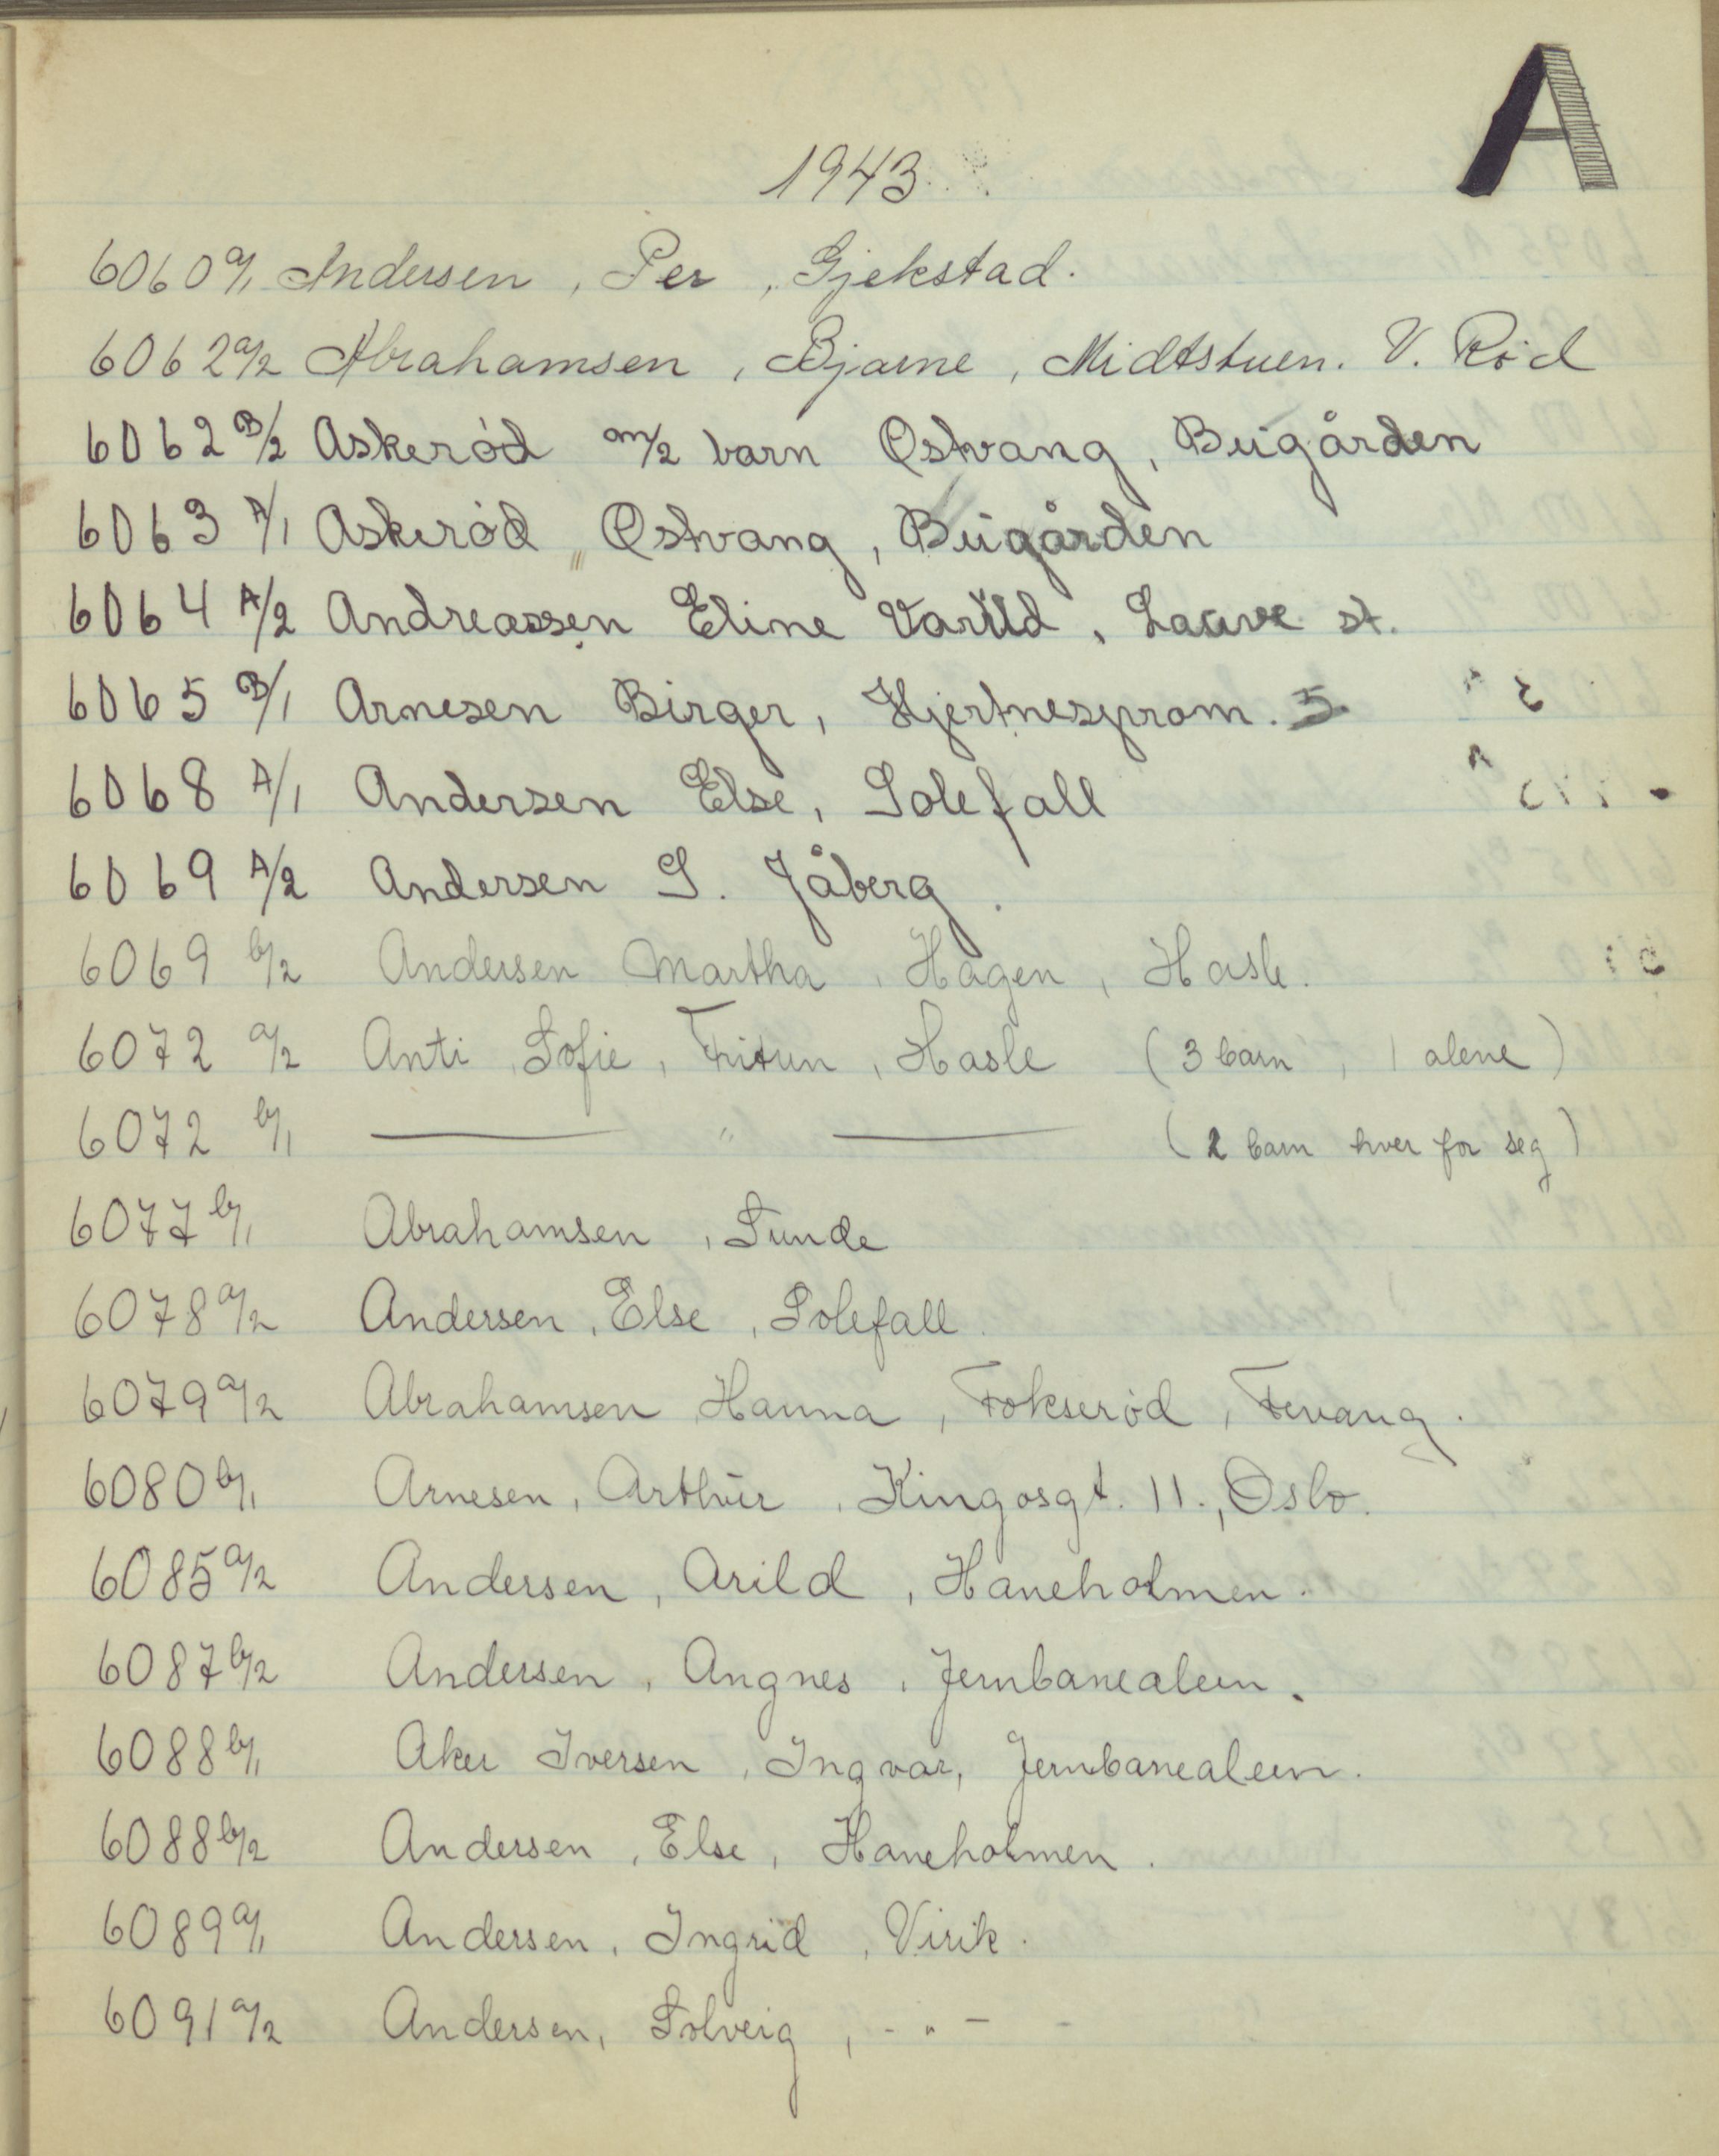 A
1943
6060 a/1 Andersen, Per, Gjekstad.
6062 a/2 Abrahamsen, Bjarne, Midtstuen. V. Rød
6062 B/2 Askerød m/2 barn Østvang, Bugården
6063 A/1 Askerød „ Østvang, Bugården
6064 A/2 Andreassen Eline Varild, Lauve st.
6065 B/1 Arnesen Birger, Hjertnesprom. 5
6068 A/1 Andersen Else, Solefall
6069 A/2 Andersen S. Jåberg.
6069 b/2 Andersen Martha, Hagen, Hasle.
6072 a/2 Anti, Sofie, Fritun, Hasle (3 barn, 1 alene)
6072 b/1 —— " —— (2 barn hver for seg)
6077 b/1 Abrahamsen, Sunde
6078 a/2 Andersen, Else, Solefall.
6079 a/2 Abrahamsen Hanna, Fokserød, Fevang.
6080 b/1 Arnesen, Arthur, Kingosgt. 11., Oslo.
6085 a/2 Andersen, Arild, Haneholmen.
6087 b/2 Andersen, Angnes, Jernbanealeen.
6088 b/1 Aker Iversen, Ingvar, Jernbanealeen.
6088 b/2 Andersen, Else, Haneholmen.
6089 a/1 Andersen, Ingrid, Virik.
6091 a/2 Andersen, Solveig, - " -